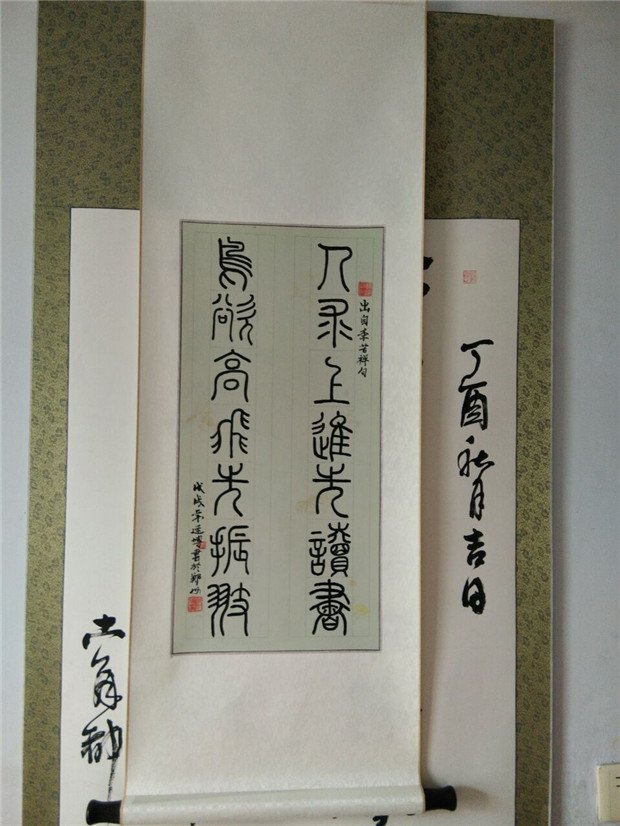 丁酉秋月吉日
出自李苦禪句
人求上進先讀書
鳥欲高飛先振翅
戊戌書於鄭州